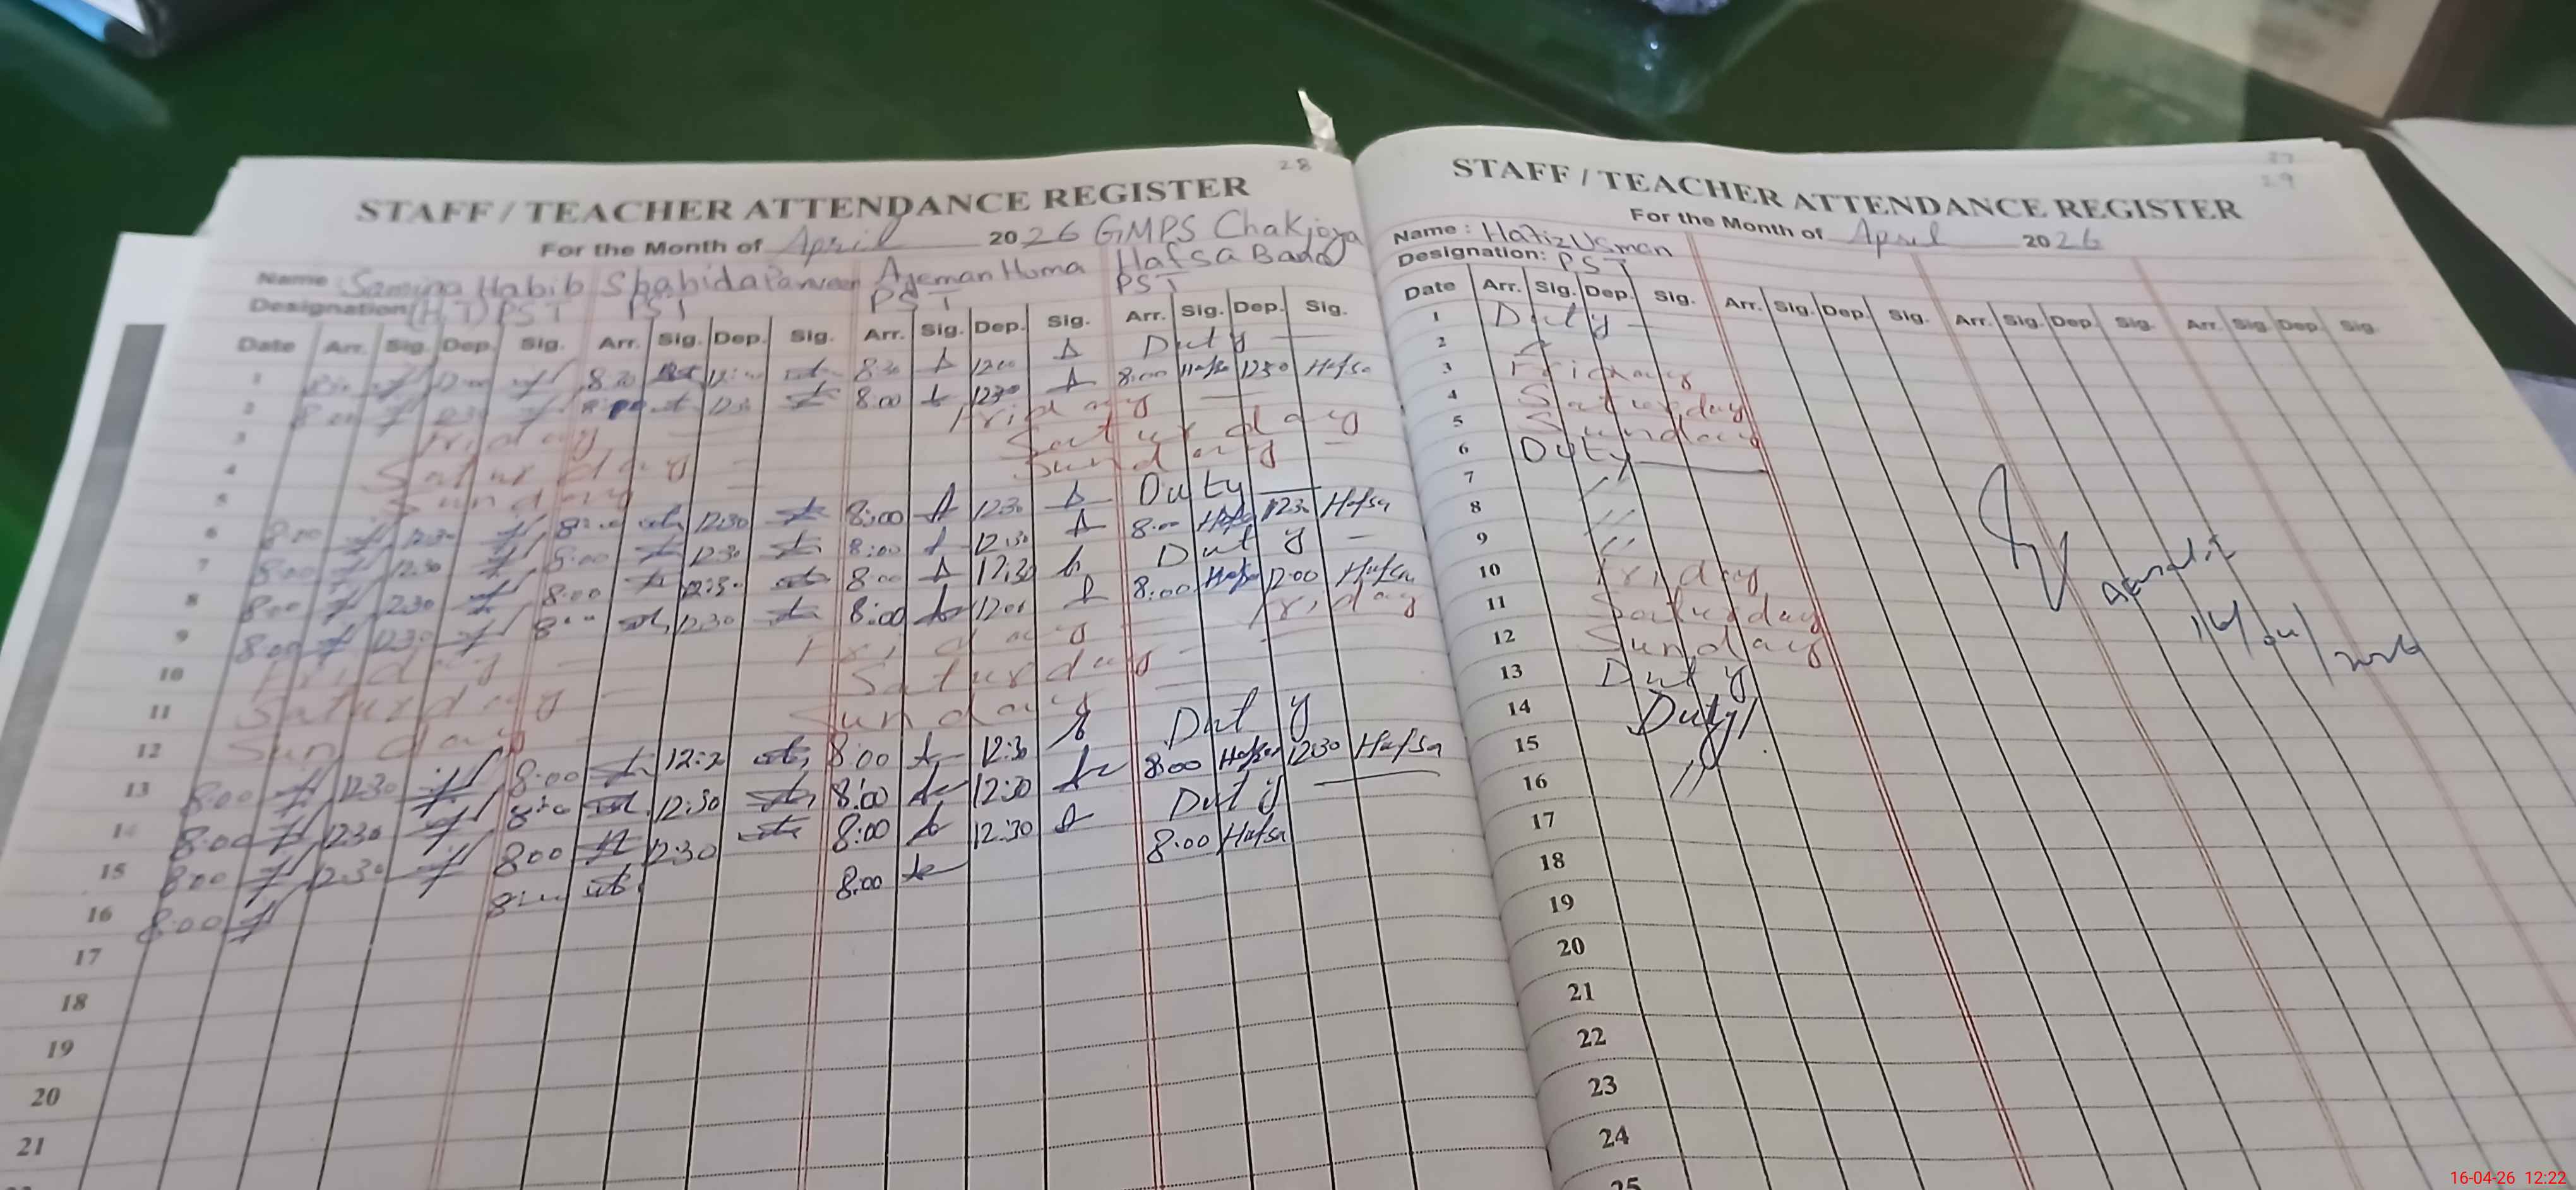 28
STAFF / TEACHER ATTENDANCE REGISTER
For the Month of April 2026 GMPS Chakjoya
Name : Samina Habib Shahida Parveen Ajeman Huma Hafsa Bano
Designation (H.T) PST PST PST PST
Date Arr. Sig. Dep. Sig. Arr. Sig. Dep. Sig. Arr. Sig. Dep. Sig. Arr. Sig. Dep. Sig.
1 8:30 12:00 8:30 8:30 1200 Duty
2 8:00 12:30 12:30 8:00 1230 8:00 Hafsa 1230 Hafsa
3 Friday Friday
4 Saturday Saturday
5 Sunday Sunday
6 8:00 12:30 8:00 12:30 8:00 1230 Duty
7 8:00 12:30 8:00 12:30 8:00 12:30 8:00 Hafsa 1230 Hafsa
8 8:00 12:30 8:00 12:30 8:00 12:30 Duty
9 8:00 12:30 8:00 12:30 8:00 12:00 8:00 Hafsa 12:00 Hafsa
10 Friday Friday Friday
11 Saturday Saturday
12 Sunday Sunday
13 8:00 12:30 8:00 8:00 12:30 Duty
14 8:00 12:30 8:00 12:30 8:00 12:30 8:00 Hafsa 1230 Hafsa
15 8:00 12:30 8:00 12:30 8:00 12:30 Duty
16 8:00 8:00 8:00 8:00 Hafsa
17
18
19
20
21
29
STAFF / TEACHER ATTENDANCE REGISTER
For the Month of April 2026
Name : Hafiz Usman
Designation: PST
Date Arr. Sig. Dep. Sig. Arr. Sig. Dep. Sig. Arr. Sig. Dep. Sig. Arr. Sig. Dep. Sig.
1 Duty
2
3 Friday
4 Saturday
5 Sunday
6 Duty
7 "
8 "
9 "
10 Friday
11 Saturday
12 Sunday
13 Duty
14 Duty
15
16 "
17
18
19
20
21
22
23
24
25
16/04/2026
16-04-26 12:22